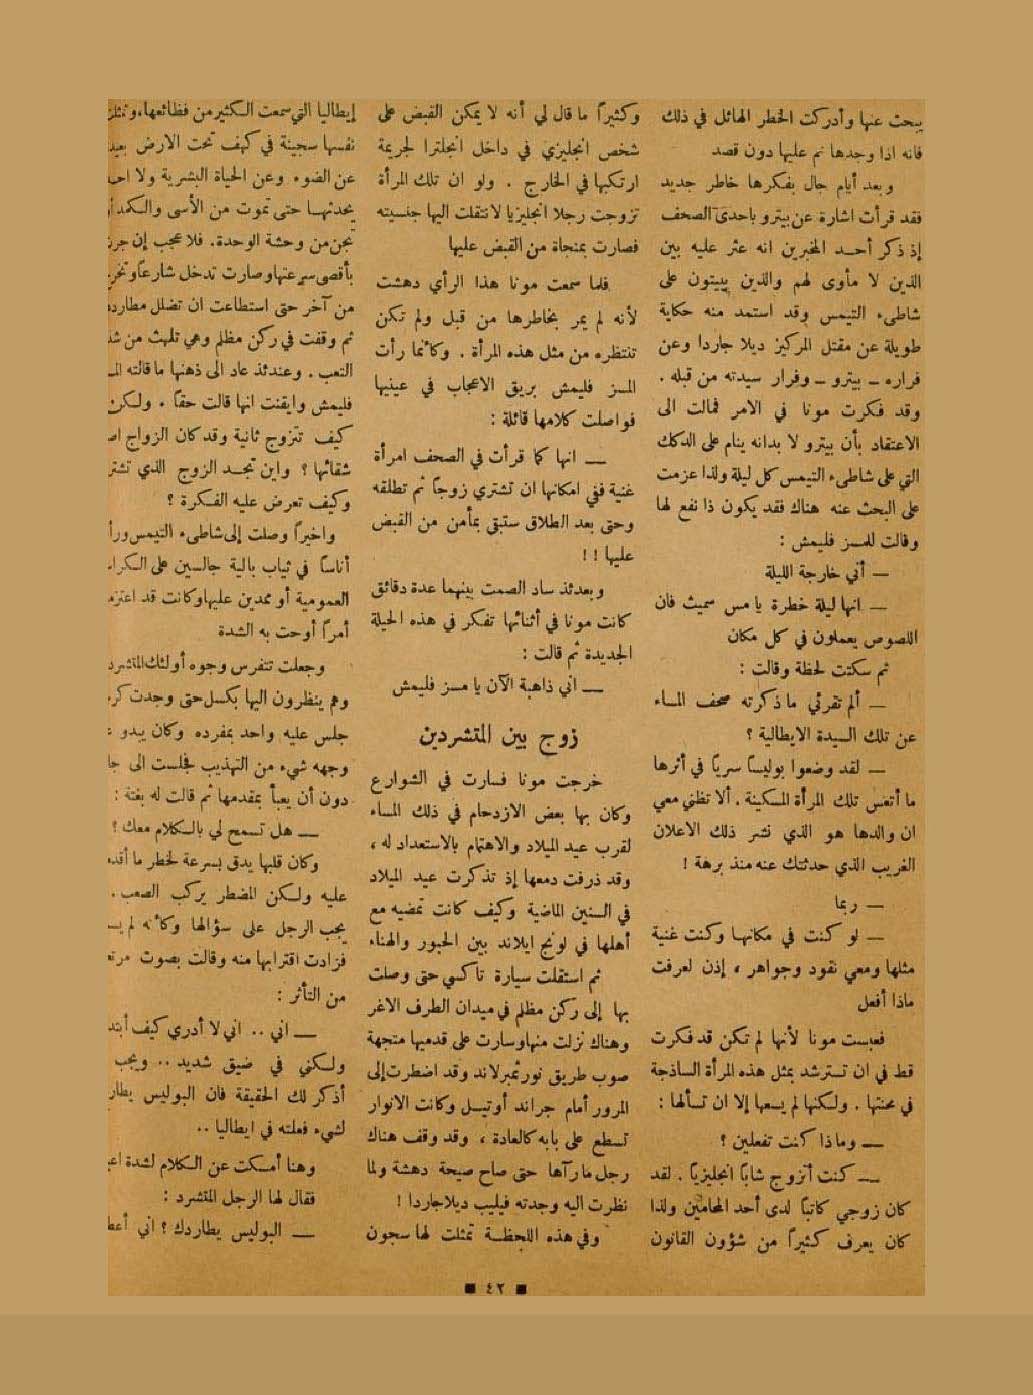 يبحث عنها وأدركت الخطر الهائل في ذلك
فانه اذا وجدها نم عليها دون قصد
وبعد أيام جال بفكرها خاطر جديد
فقد قرأت اشارة عن بيترو باحدى الصحف
إذ ذكر أحد المخبرين انه عثر عليه بين
الذين لا مأوى لهم والذين يبيتون على
شاطىء التيمس وقد استمد منه حكاية
طويلة عن مقتل المركيز ديلا جاردا وعن
فراره ــ بيترو ــ وفرار سيدته من قبله .
وقد فكرت مونا في الامر فمالت الى
الاعتقاد بأن بيترو لا بدانه ينام على الدكك
التي على شاطىء التيمس كل ليلة ولذا عزمت
على البحث عنه هناك فقد يكون ذا نفع لها
وقالت للمسز فليمش :
ــ أني خارجة الليلة
ــ انها ليلة خطرة يا مس سميث فان
اللصوص يعملون في كل مكان
ثم سكتت لحظة وقالت :
ــ ألم تقرئي ما ذكرته صحف المساء
عن تلك السيدة الايطالية ؟
ــ لقد وضعوا بوليساً سرياً في أثرها
ما أتعس تلك المرأة المسكينة . ألا تظني معي
ان والدها هو الذي نشر ذلك الاعلان
الغريب الذي حدثتك عنه منذ برهة !
ــ ربما
ــ لو كنت في مكانها وكنت غنية
مثلها ومعي نقود وجواهر ، إذن لعرفت
ماذا أفعل
فعبست مونا لأنها لم تكن قد فكرت
قط في ان تسترشد بمثل هذه المرأة الساذجة
في محنتها . ولكنها لم يسعها إلا ان تسألها :
ــ وماذا كنت تفعلين ؟
ــ كنت أتزوج شابا انجليزياً . لقد
كان زوجي كاتباً لدى أحد المحامين ولذا
كان يعرف كثيراً من شؤون القانون
وكثيراً ما قال لي أنه لا يمكن القبض على
شخص انجليزي في داخل انجلترا لجريمة
ارتكبها في الخارج . ولو ان تلك المرأة
تزوجت رجلا انجليزيا لانتقلت اليها جنسيته
فصارت بمنجاة من القبض عليها
فلما سمعت مونا هذا الرأي دهشت
لأنه لم يمر بخاطرها من قبل ولم تكن
تنتظره من مثل هذه المرأة . وكأنما رأت
المسز فليمش بريق الاعجاب في عينيها
فواصلت كلامها قائلة :
ــ انها كما قرأت في الصحف امرأة
غنية ففي امكانها ان تشتري زوجاً ثم تطلقه
وحتى بعد الطلاق ستبقى بمأمن من القبض
عليها ! !
وبعدئذ ساد الصمت بينهما عدة دقائق
كانت مونا في أثنائها تفكر في هذه الحيلة
الجديدة ثم قالت :
ــ اني ذاهبة الآن يا مسز فليمش
زوج بين المتشردين
خرجت مونا فسارت في الشوارع
وكان بها بعض الازدحام في ذلك المساء
لقرب عيد الميلاد والاهتمام بالاستعداد له ،
وقد ذرفت دمعها إذ تذكرت عيد الميلاد
في السنين الماضية وكيف كانت تمضيه مع
أهلها في لونج ايلاند بين الحبور والهناء
ثم استقلت سيارة تاكسي حتى وصلت
بها إلى ركن مظلم في ميدان الطرف الاغر
وهناك نزلت منها وسارت على قدميها متجهة
صوب طريق نورثمبرلاند وقد اضطرت إلى
المرور أمام جراند أوتيل وكانت الانوار
تسطع على بابه كالعادة ، وقد وقف هناك
رجل ما رآها حتى صاح صيحة دهشة ولما
نظرت اليه وجدته فيليب ديلا جاردا !
وفي هذه اللحظة تمثلت لها سجون
إيطاليا التي سمعت الكثير من فظائعها، وتمثلت
نفسها سجينة في كهف تحت الارض
عن الضوء وعن الحياة البشرية ولا
يحدثها حتى تموت من الأسى والكمد
تجن من وحشة الوحدة. فلا عجب إن
بأقصى سرعتها وصارت تدخل شارعاً
من آخر حتى استطاعت ان تضلل
ثم وقفت في ركن مظلم وهي تلهث من
التعب . وعندئذ عاد الى ذهنها ما قالته
فليمش وايقنت انها قالت حقاً . ولكن
كيف تتزوج ثانية وقد كان الزواج
شقائها ؟ واين تجد الزوج الذي
وكيف تعرض عليه الفكرة ؟
واخيراً وصلت إلى شاطىء التيمس
أناساً في ثياب بالية جالسين على
العمومية أو ممددين عليها وكانت قد
أمراً أوحت به الشدة
وجعلت تتفرس وجوه أولئك
وهم ينظرون اليها بكسل حتى وجدت
جلس عليه واحد بمفرده وكان يبدو
وجهه شيء من التهذيب فجلست الى
دون أن يعبأ بمقدمها ثم قالت له بغتة :
ــ هل تسمح لي بالكلام معك ؟
وكان قلبها يدق بسرعة لخطر ما
عليه ولكن المضطر يركب الصعب .
يجب الرجل على سؤالها وكأنه لم
فزادت اقترابها منه وقالت بصوت
من التأثر :
ــ اني .. اني لا أدري كيف
ولكني في ضيق شديد .. ويجب
أذكر لك الحقيقة فان البوليس
لشيء فعلته في ايطاليا ..
وهنا أمسكت عن الكلام لشدة
فقال لها الرجل المتشرد :
ــ البوليس يطاردك ؟ اني
■ ٤٢ ■